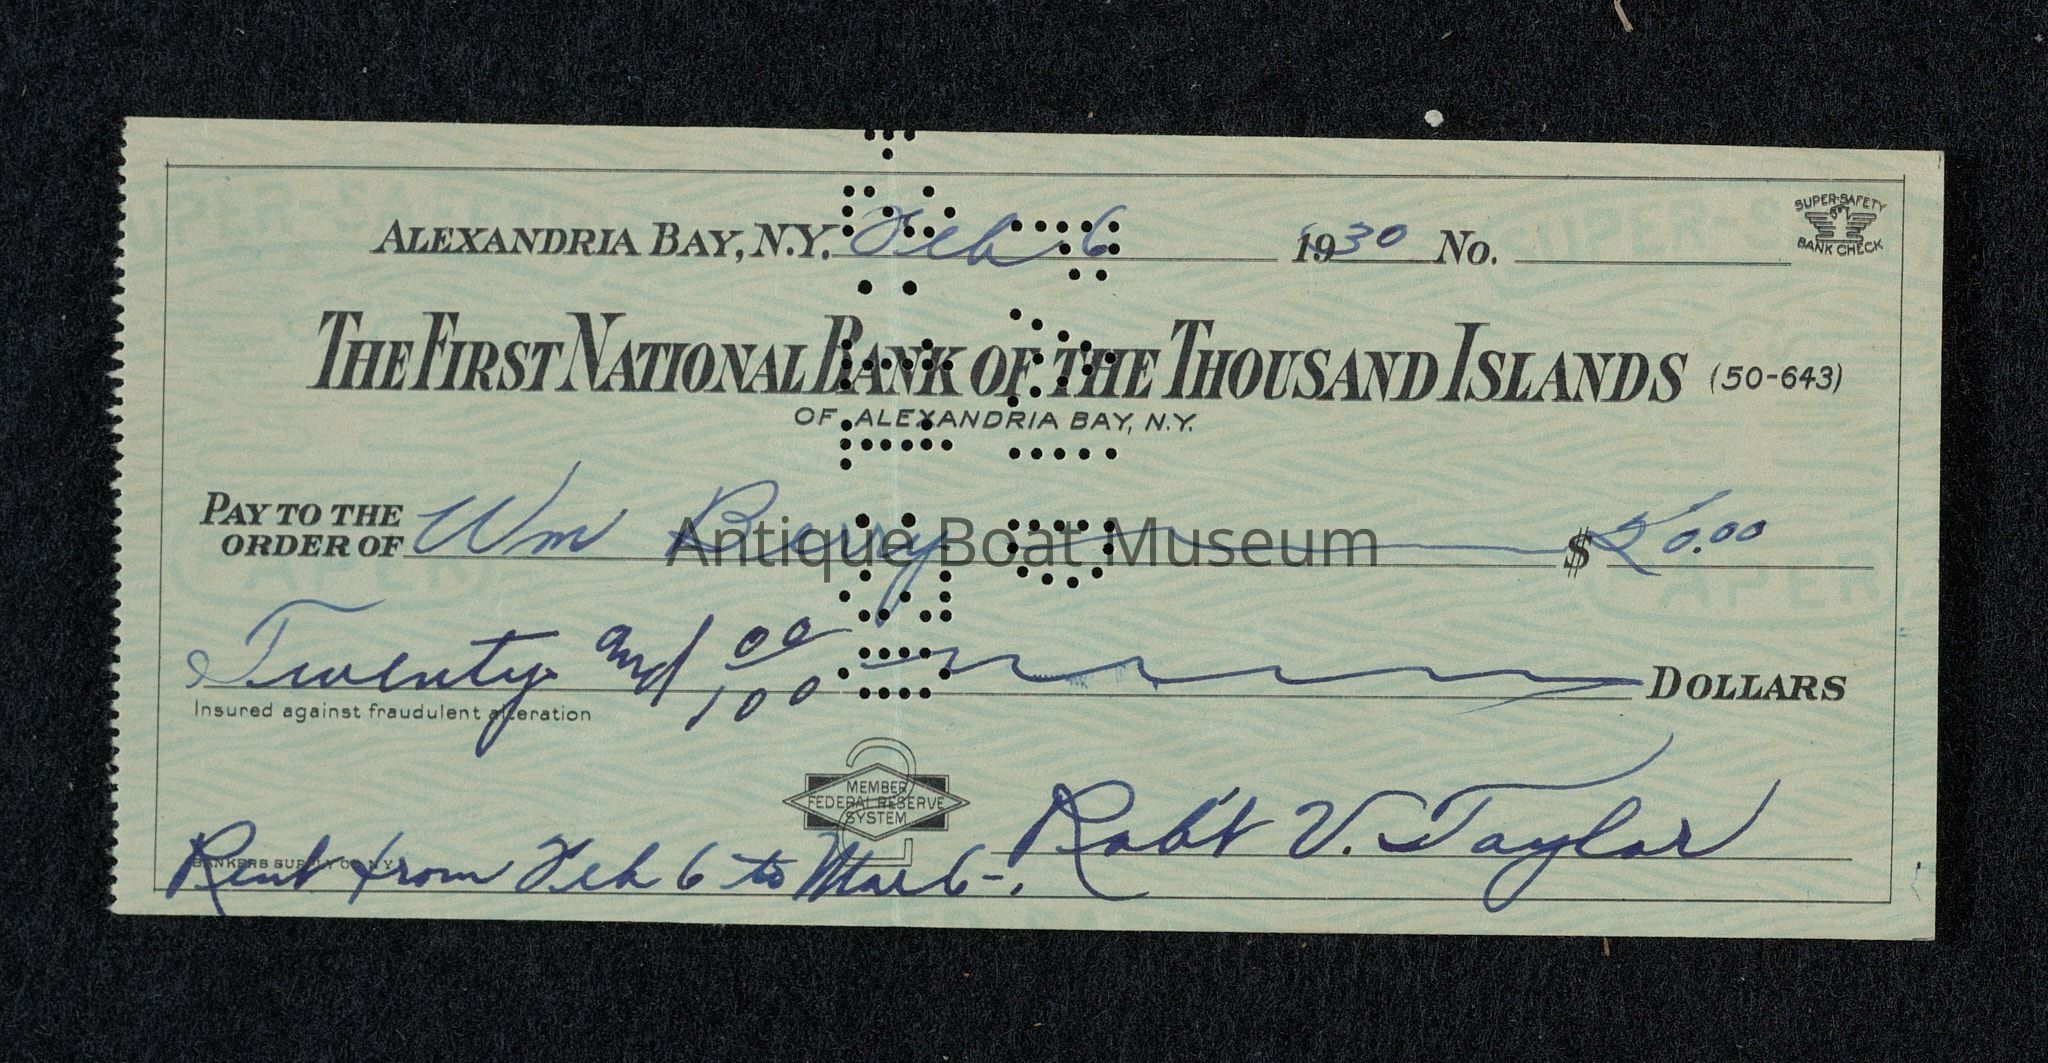 SUPER-SAFETY
BANK CHECK
ALEXANDRIA BAY, N.Y. Feb 6 1930 No.
THE FIRST NATIONAL BANK OF THE THOUSAND ISLANDS (50-643)
OF ALEXANDRIA BAY, N.Y.
PAY TO THE
ORDER OF Wm Berry $ 20.00
Antique Boat Museum
Twenty and 00/100 DOLLARS
Insured against fraudulent alteration
MEMBER
FEDERAL RESERVE
SYSTEM
Rob't V. Taylor
BANKERS SUPPLY CO. N.Y.
Rent from Feb 6 to Mar 6-.